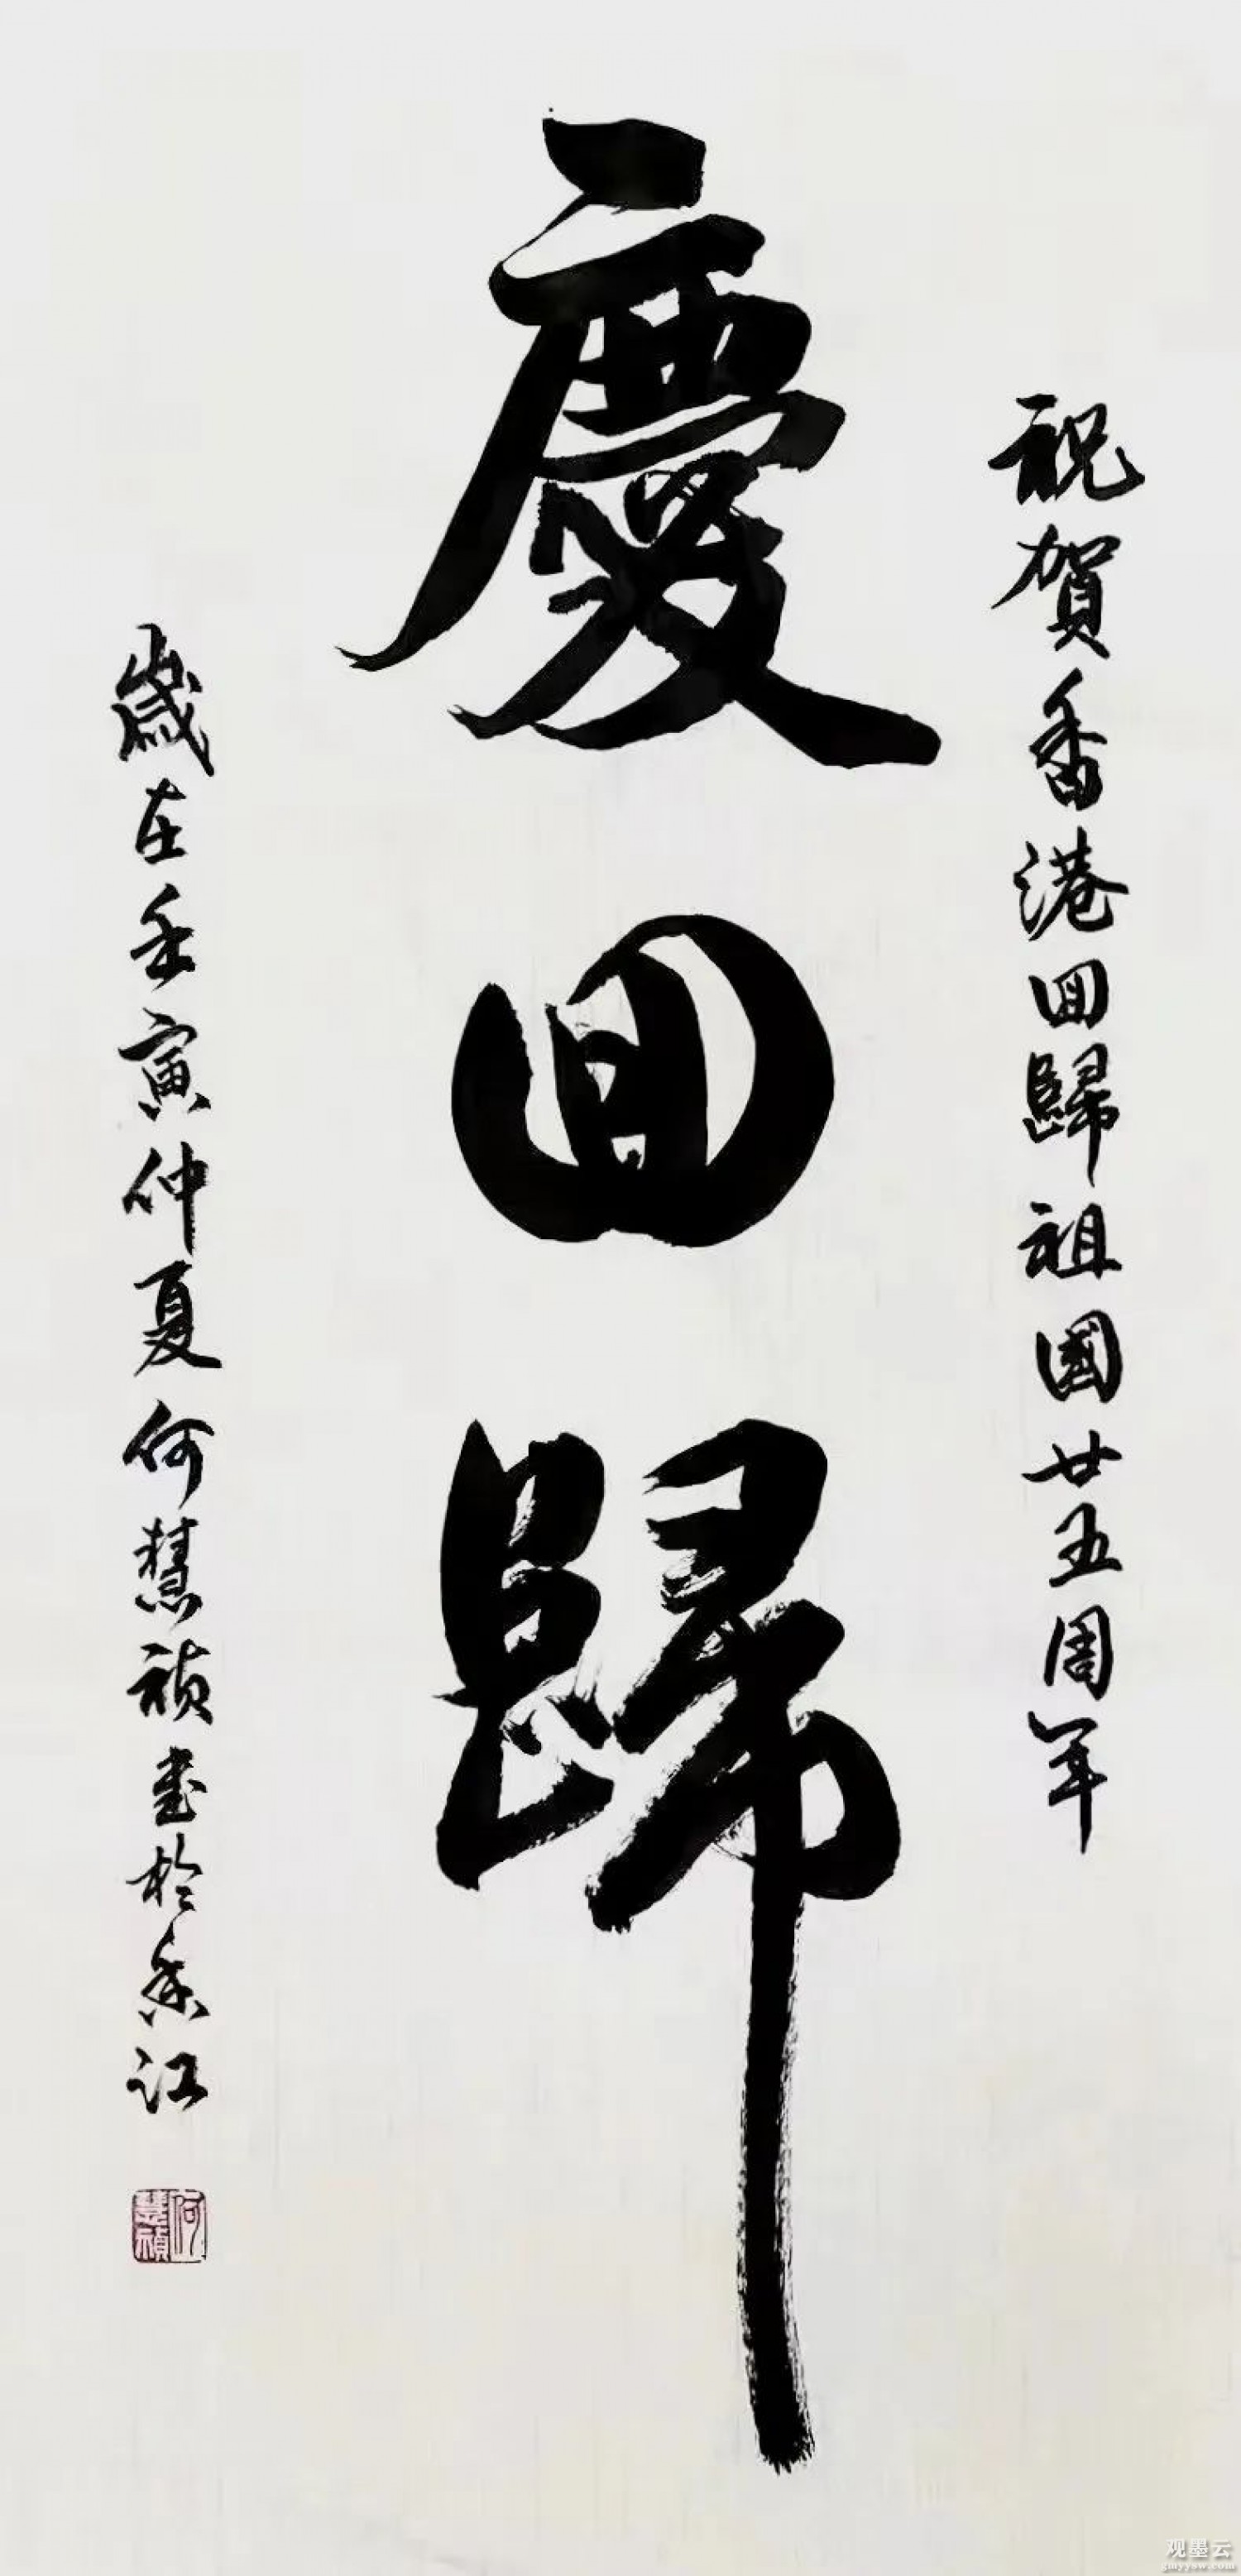 祝賀香港回歸祖國廿五周年
慶回歸
歲在壬寅仲夏何慧禎書於香江
何慧禎
观墨云
jmyysw.com